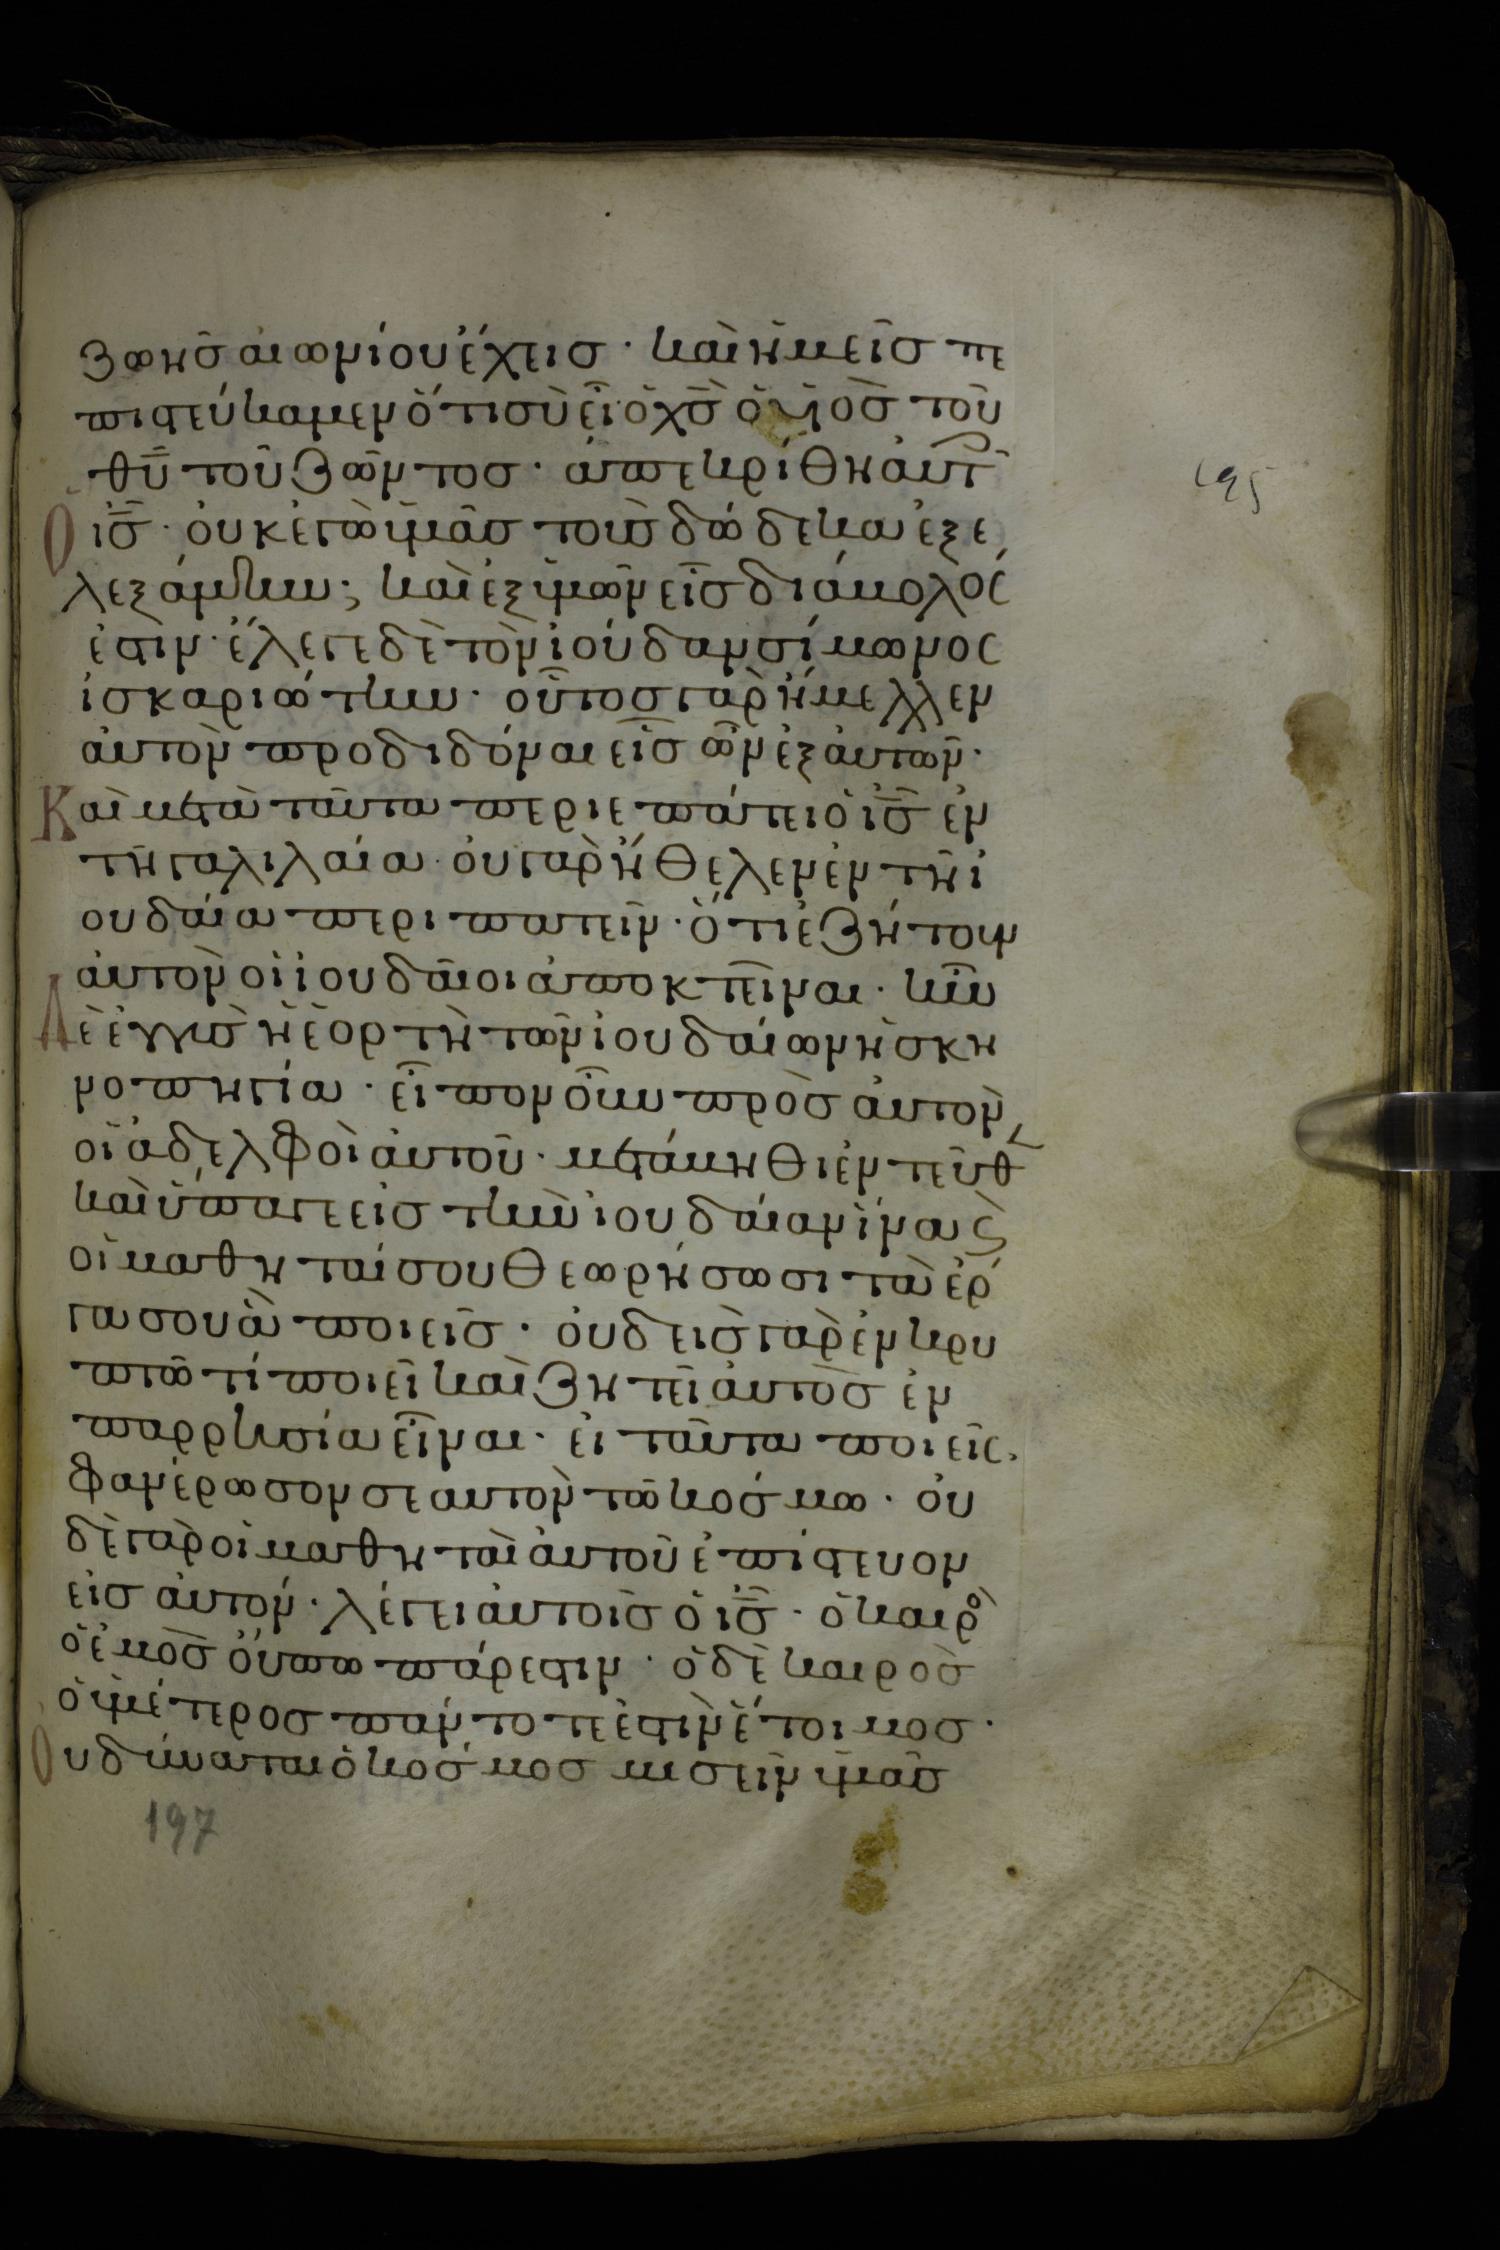 ζωῆσ αἰωνίου ἔχεισ · καὶ ἡμεῖσ πε
πιστεύκαμεν ὅτι σὺ εἶ ὁ χ̅σ̅ ὁ υἱὸσ τοῦ
θ̅υ̅ τοῦ ζῶντοσ · ἀπεκρίθη αὐτ
ὁ ι̅σ̅ · οὐκ ἐγὼ ὑμᾶσ τοὺσ δώδεκα ἐξε
λεξάμην ; καὶ ἐξ ὑμῶν εἷσ διάβολός
ἐστιν · ἔλεγε δὲ τὸν ἰούδαν σίμωνος
ἰσκαριώτην · οὗτοσ γὰρ ἤμελλεν
αὐτὸν προδιδόναι εἷσ ὢν ἐξ αὐτῶν ·
Καὶ μετὰ ταῦτα περιεπάτει ὁ ι̅σ̅ ἐν
τῆ γαλιλαία · οὐ γὰρ ἤθελεν ἐν τῆ ἰ
ουδαία περιπατεῖν · ὅτι ἐζήτουν
αὐτὸν οἱ ἰουδαῖοι ἀποκτεῖναι · ἦν
Δὲ ἐγγὺσ ἡ ἑορτὴ τῶν ἰουδαίων ἡ σκη
νοπηγία · εἶπον οὖν πρὸσ αὐτὸν
οἱ ἀδελφοὶ αὐτοῦ · μετάβηθι ἐντεῦθ
καὶ ὕπαγε εἰσ τὴν ἰουδαίαν ἵνα ϗ
οἱ μαθηταί σου θεωρήσωσι τὰ ἔρ
γα σου ἃ ποιεῖσ · οὐδεὶσ γὰρ ἐν κρυ
πτῶ τί ποιεῖ καὶ ζητεῖ αὐτὸσ ἐν
παρρησία εἶναι · εἰ ταῦτα ποιεῖς ·
φανέρωσον σεαυτὸν τῶ κόσμω · οὐ
δὲ γὰρ οἱ μαθηταὶ αὐτοῦ ἐπίστευον
εἰσ αὐτόν · λέγει αὐτοῖσ ὁ ι̅σ̅ · ὁ καιρο
ὁ ἐμὸσ οὔπω πάρεστιν · ὁ δὲ καιρὸσ
ὁ ὑμέτεροσ πάντοτέ ἐστιν ἕτοιμοσ ·
Οὐ δύναται ὁ κόσμοσ μισεῖν ὑμᾶσ
195
197